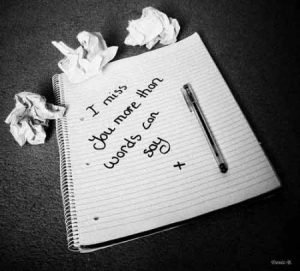 I miss
you more than
words can
say
x